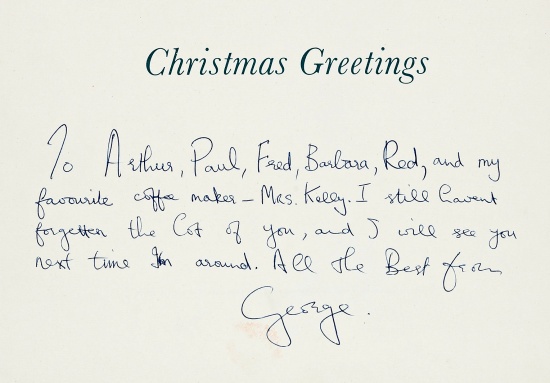 Christmas Greetings
To Arthur, Paul, Fred, Barbara, Red, and my
favourite coffee maker – Mrs. Kelly. I still havent
forgetten the Lot of you, and I will see you
next time Im around. All the Best from
George.